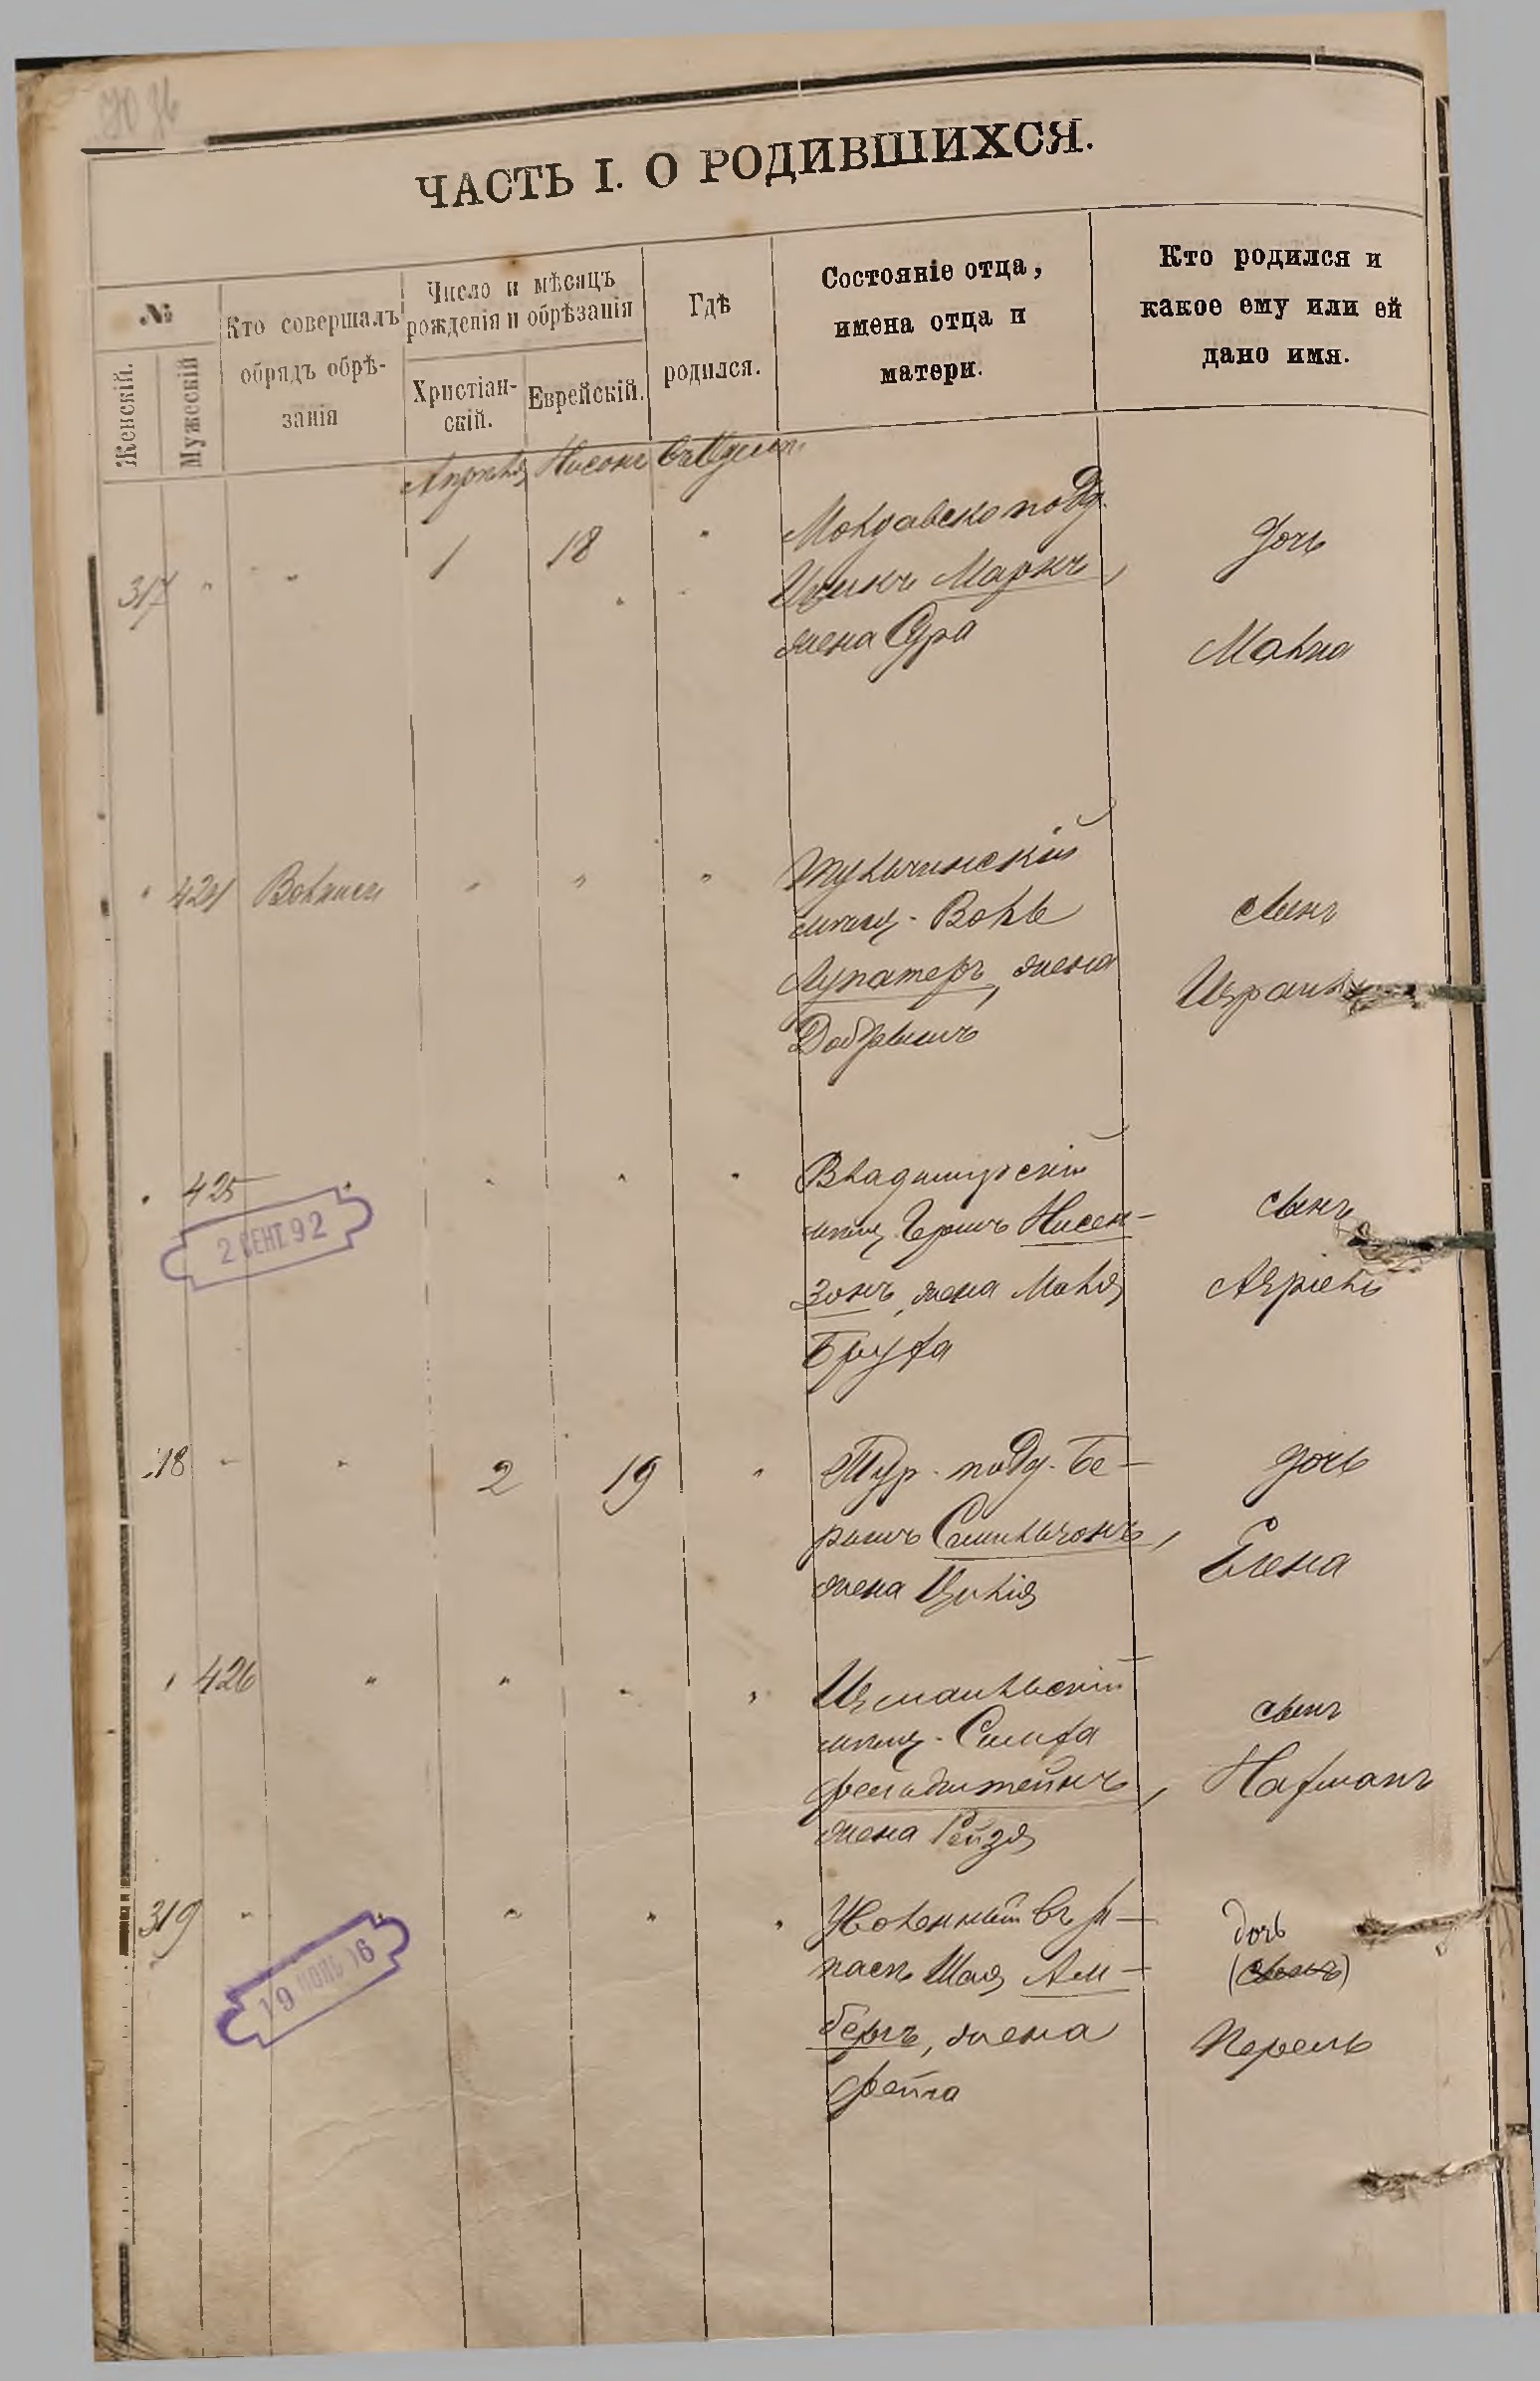 ЧАСТЬ I. О РОДИВШИХСЯ.
№
Женскій.
Мужескій
Кто совершалъ
обрядъ обрѣ-
занія
Число и мѣсяцъ
рожденія и обрѣзанія
Христіан-
скій.
Еврейскій.
Гдѣ
родился.
Состояніе отца,
имена отца и
матери.
Кто родился и
какое ему или ей
дано имя.
Апрѣля Нисонъ въ Одессѣ
317 " " 1 18 "
Молдавско подд.
Ицикъ Маркъ,
жена Сура
дочь
Малка
" 424 Вольман " " "
Тульчинскій
мѣщ. Воль
Лупатеръ, жена
Добрышъ
сынъ
Израиль
" 425 " " " "
2 СЕНТ. 92
Владимірскій
мѣщ. Гершъ Нисен-
зонъ, жена Маля
Бруха
сынъ
Азріель
318 " " 2 19 "
Тур. подд. Бе-
ришъ Симильзонъ,
жена Цивія
дочь
Елена
" 426 " " " "
Измаильскій
мѣщ. Симха
Фельдштейнъ,
жена Рейзя
сынъ
Нахманъ
319 " " " "
19 ИЮЛЬ 16
Уволенный въ за-
пасъ Шая Ам-
бергъ, жена
Фейга
дочь
(сынъ)
Перель